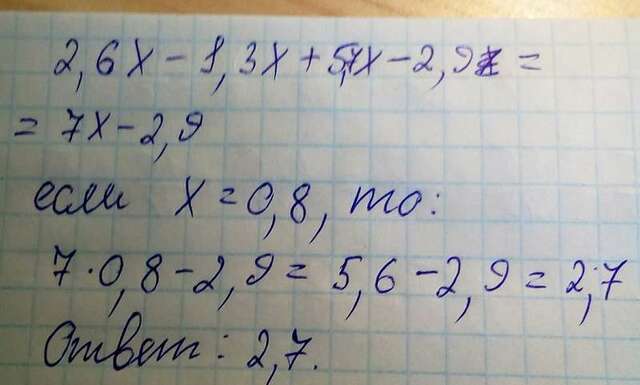 2,6x - 1,3x + 5,7x - 2,9 =
= 7x - 2,9
если x = 0,8, то:
7 · 0,8 - 2,9 = 5,6 - 2,9 = 2,7
Ответ: 2,7.